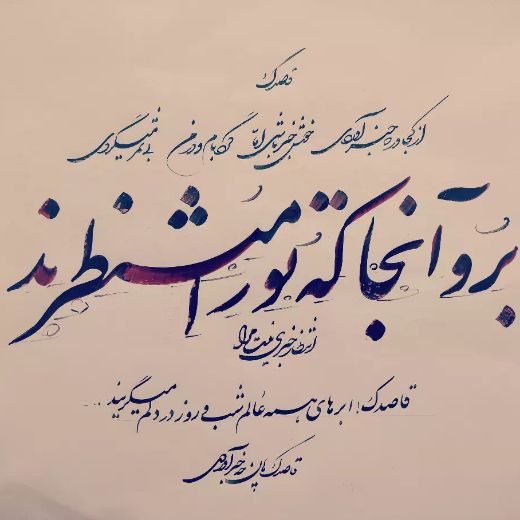 قاصدک
از کجا وز چه خبر آوردی خوش خبر باشی اما گرد بام و در من بی ثمر میگردی
برو آنجا که تو را منتظرند
انتظار خبری نیست مرا
قاصدک! ابرهای همه عالم شب و روز در دلم میگریند ...
قاصدک هان چه خبر آوردی